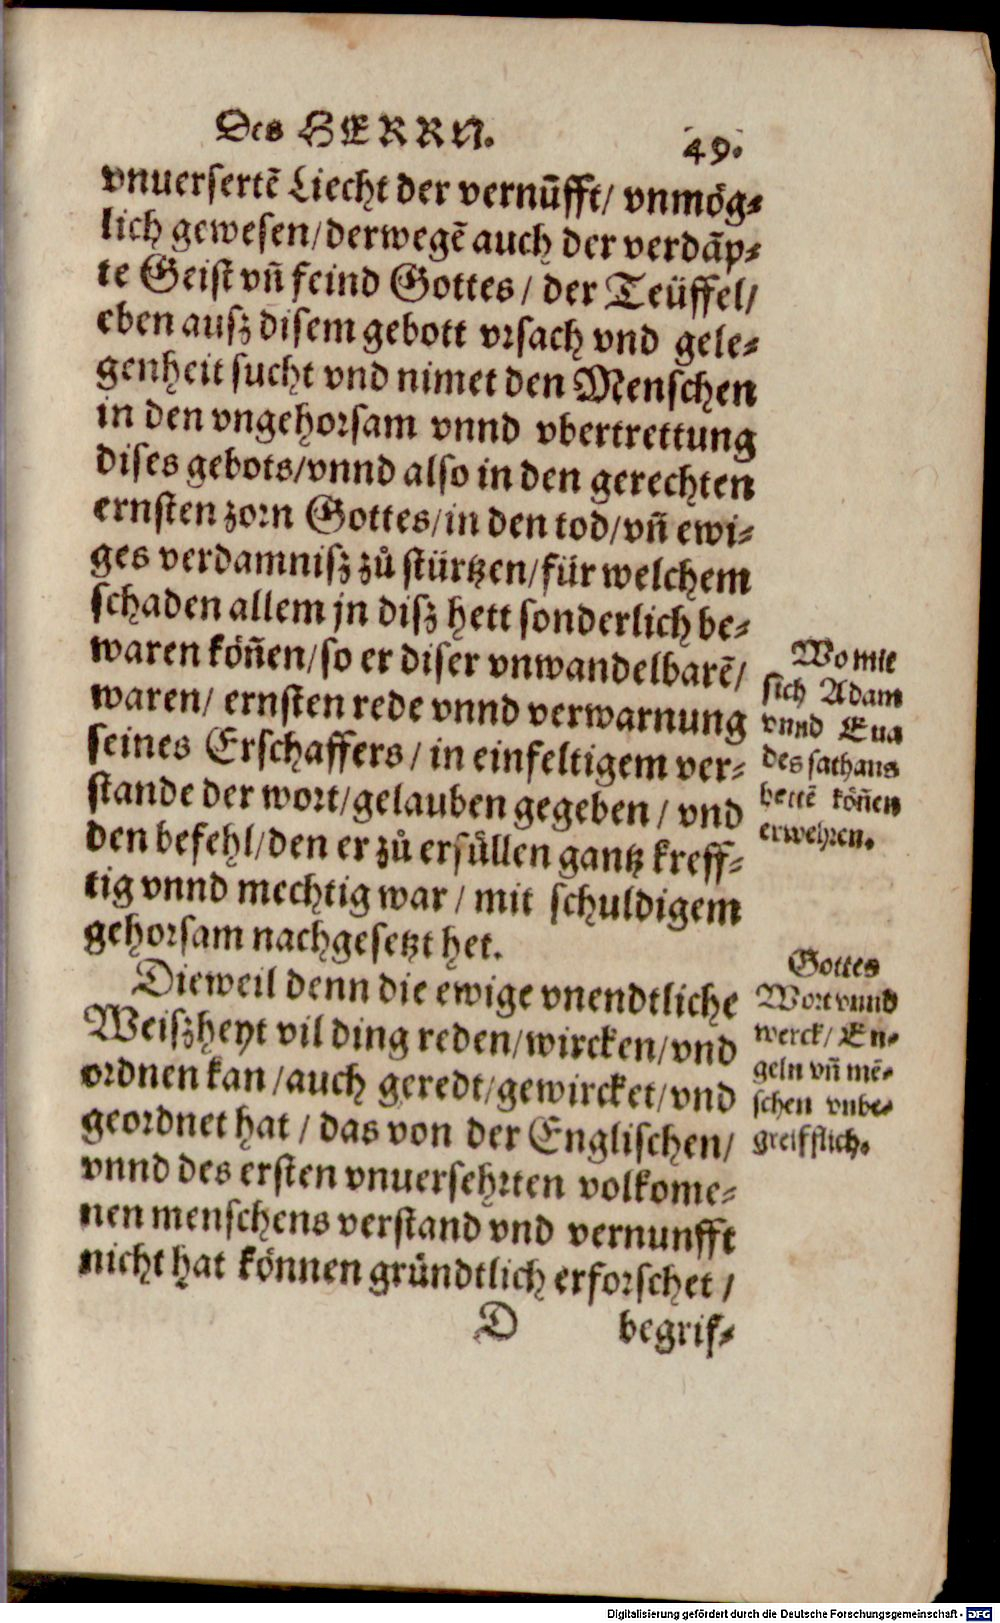 Des HERRN.
49.
vnuersertẽ Liecht der vernũfft/ vnmög⸗
lich gewesen/ derwegẽ auch der verdãp⸗
te Geist vñ feind Gottes / der Teüffel/
eben ausz disem gebott vrsach vnd gele⸗
genheit sucht vnd nimet den Menschen
in den vngehorsam vnnd vbertrettung
dises gebots/ vnnd also in den gerechten
ernsten zorn Gottes/ in den tod/ vñ ewi⸗
ges verdamnisz zů stürtzen/ für welchem
schaden allem jn disz hett sonderlich be⸗
waren köñen/ so er diser vnwandelbarẽ/
waren/ ernsten rede vnnd verwarnung
seines Erschaffers / in einfeltigem ver⸗
stande der wort/ gelauben gegeben / vnd
den befehl/ den er zů erfüllen gantz kreff⸗
tig vnnd mechtig war / mit schuldigem
gehorsam nachgesetzt het.
Dieweil denn die ewige vnendtliche
Weiszheyt vil ding reden/ wircken/ vnd
ordnen kan / auch geredt/ gewircket/ vnd
geordnet hat / das von der Englischen/
vnnd des ersten vnuersehrten volkome⸗
nen menschens verstand vnd vernunfft
nicht hat können gründtlich erforschet /
D begrif⸗
Wo mit
sich Adam
vnnd Eua
des sathans
hettẽ köñen
erwehren.
Gottes
Wort vnnd
werck/ En⸗
geln vñ mẽ⸗
schen vnbe⸗
greifflich.
Digitalisierung gefördert durch die Deutsche Forschungsgemeinschaft - DFG